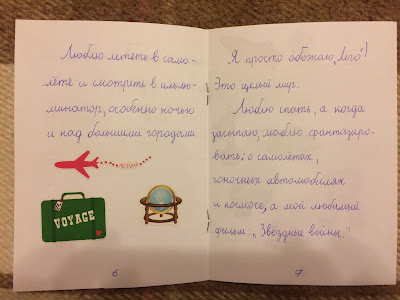 Люблю лететь в само-
лёте и смотреть в иллю-
минатор, особенно ночью
и над большими городами
ЛЕТИМ
VOYAGE
6
Я просто обожаю „Lego"!
Это целый мир.
Люблю спать, а когда
засыпаю, люблю фантазиро-
вать: о самолётах,
гоночных автомобилях
и космосе, а мой любимый
фильм - „Звёздные войны."
7